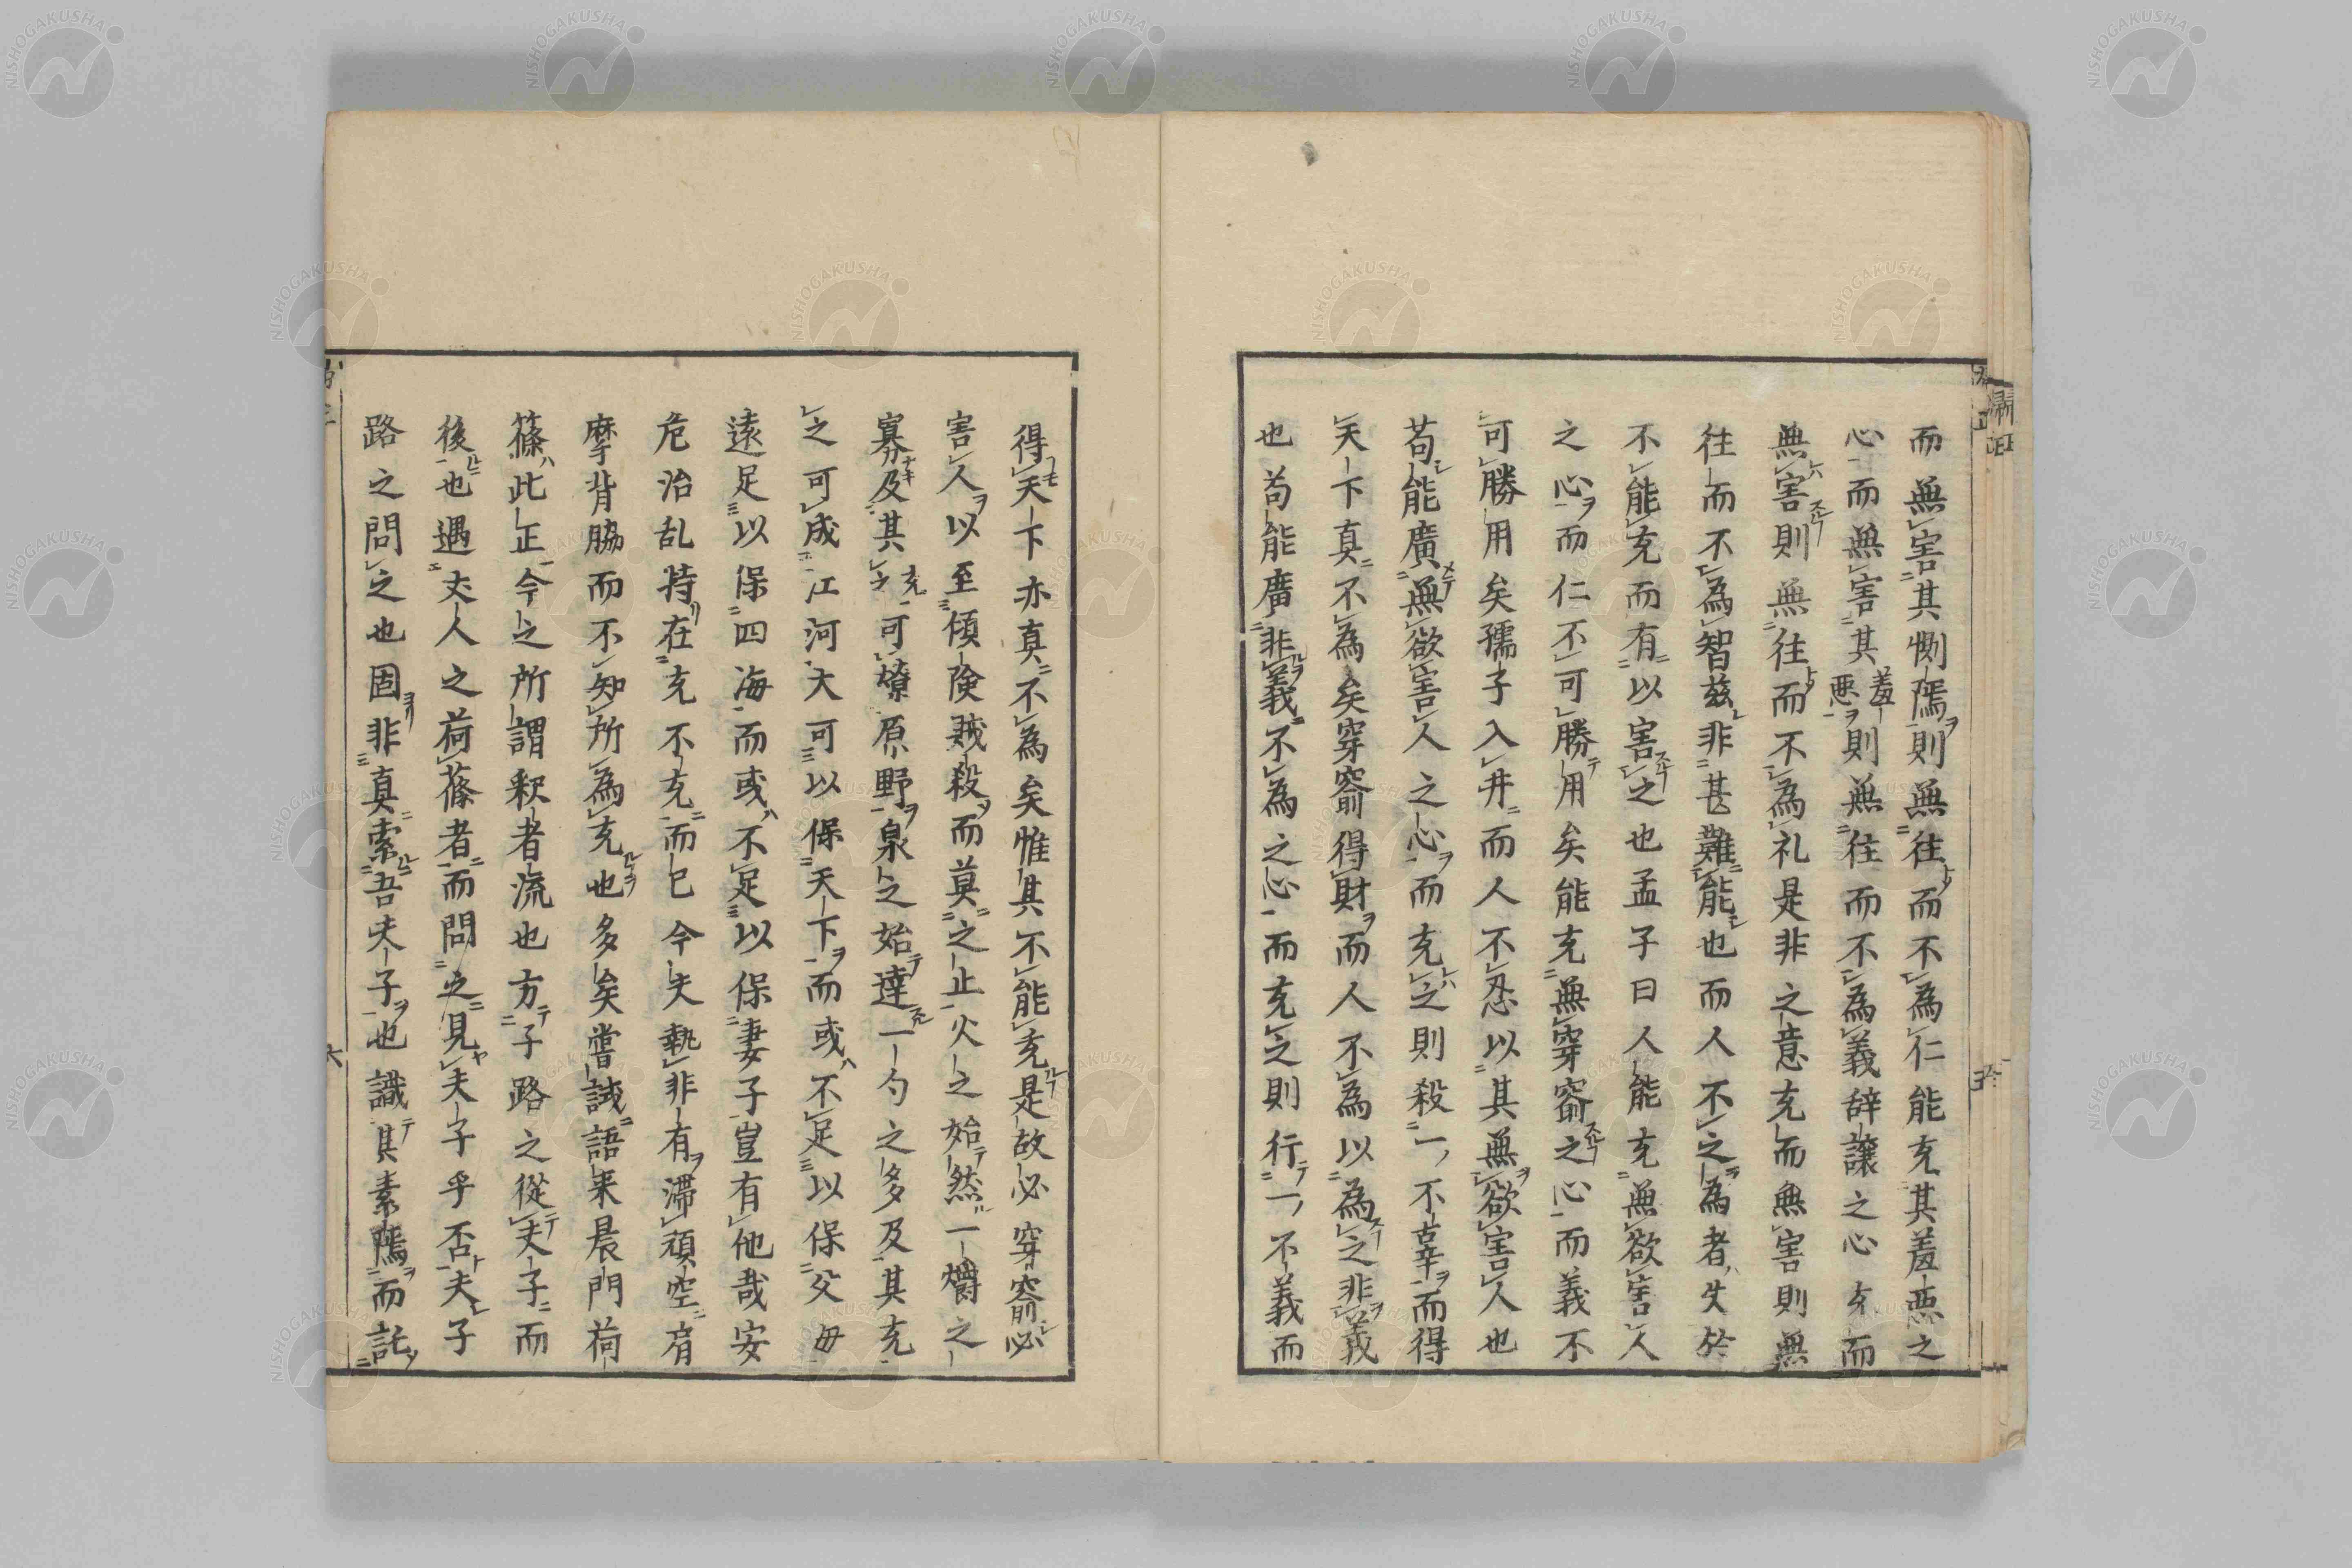 而無害其惻隱則無往而不為仁能充其羞惡之
心而無害其羞惡則無往而不為義辞讓之心充而
無害則無往而不為礼是非之意充而無害則無
往而不為智茲非甚難能也而人不之為者失於
不能充而有以害之也孟子曰人能充無欲害人
之心而仁不可勝用矣能充無穿窬之心而義不
可勝用矣孺子入井而人不忍以其無欲害人也
苟能廣無欲害人之心而充之則殺一不辜而得
天下真不為矣穿窬得財而人不為以為之非義
也苟能廣非義不為之心而充之則行一不義而
得天下亦真不為矣惟其不能充是故必穿窬必
害人以至傾険賊殺而莫之止火之始然一爝之
寡及其充之可燎原野泉之始達一勺之多及其充
之可成江河大可以保天下而或不足以保父母
遠足以保四海而或不足以保妻子豈有他哉安
危治乱特在充不充而已今夫執非有滞頑空有
摩背脇而不知所為充也多矣嘗誠語来晨門荷
篠此正今之所謂釈者流也方子路之從夫子而
後也遇丈人之荷篠者而問之見夫子乎否夫子
路之問之也固非真索吾夫子也識其素隱而託